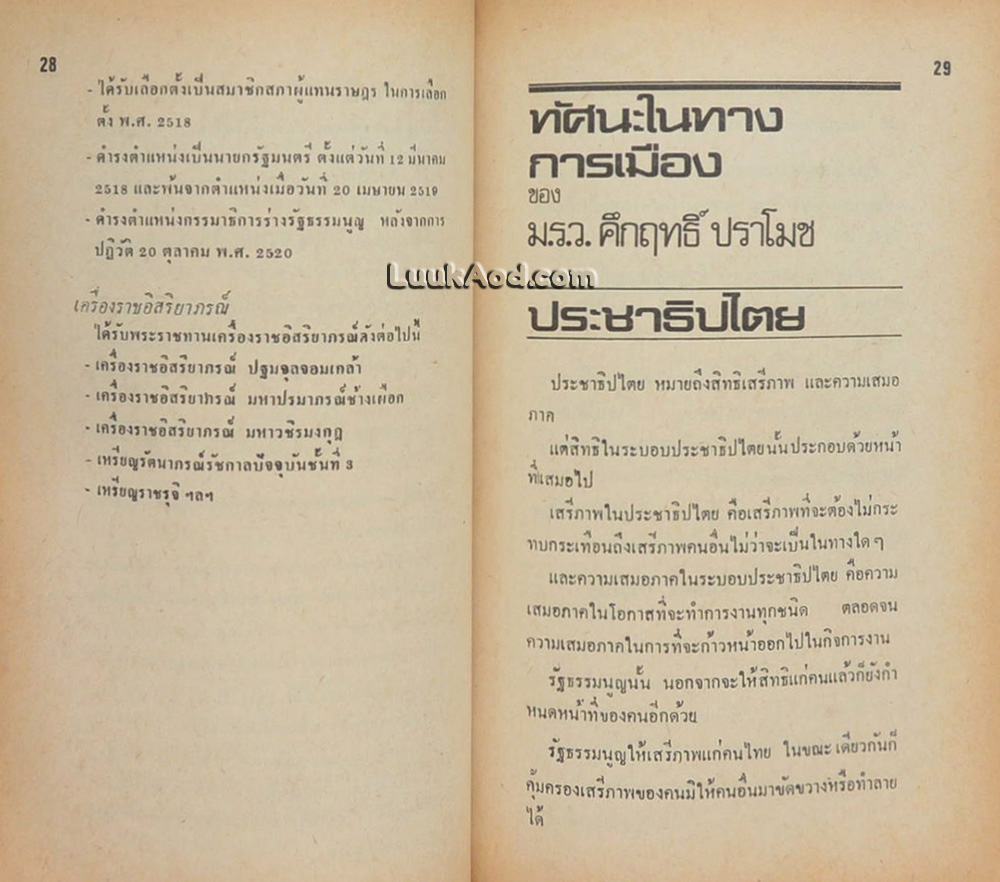 28
- ได้รับเลือกตั้งเป็นสมาชิกสภาผู้แทนราษฎร ในการเลือก
ตั้ง พ.ศ. 2518
- ดำรงตำแหน่งเป็นนายกรัฐมนตรี ตั้งแต่วันที่ 12 มีนาคม
2518 และพ้นจากตำแหน่งเมื่อวันที่ 20 เมษายน 2519
- ดำรงตำแหน่งกรรมาธิการร่างรัฐธรรมนูญ หลังจากการ
ปฏิวัติ 20 ตุลาคม พ.ศ. 2520
เครื่องราชอิสริยาภรณ์
ได้รับพระราชทานเครื่องราชอิสริยาภรณ์ดังต่อไปนี้
- เครื่องราชอิสริยาภรณ์ ปฐมจุลจอมเกล้า
- เครื่องราชอิสริยาภรณ์ มหาปรมาภรณ์ช้างเผือก
- เครื่องราชอิสริยาภรณ์ มหาวชิรมงกุฎ
- เหรียญรัตนาภรณ์รัชกาลปัจจุบันชั้นที่ 3
- เหรียญราชรุจิ ฯลฯ
LuukAod.com
29
ทัศนะในทาง
การเมือง
ของ
ม.ร.ว. คึกฤทธิ์ ปราโมช
ประชาธิปไตย
ประชาธิปไตย หมายถึงสิทธิเสรีภาพ และความเสมอ
ภาค
แต่สิทธิในระบอบประชาธิปไตยนั้นประกอบด้วยหน้า
ที่เสมอไป
เสรีภาพในประชาธิปไตย คือเสรีภาพที่จะต้องไม่กระ
ทบกระเทือนถึงเสรีภาพคนอื่นไม่ว่าจะเป็นในทางใด ๆ
และความเสมอภาคในระบอบประชาธิปไตย คือความ
เสมอภาคในโอกาสที่จะทำการงานทุกชนิด ตลอดจน
ความเสมอภาคในการที่จะก้าวหน้าออกไปในกิจการงาน
รัฐธรรมนูญนั้น นอกจากจะให้สิทธิแก่คนแล้วก็ยังกำ
หนดหน้าที่ของคนอีกด้วย
รัฐธรรมนูญให้เสรีภาพแก่คนไทย ในขณะเดียวกันก็
คุ้มครองเสรีภาพของคนมิให้คนอื่นมาขัดขวางหรือทำลาย
ได้